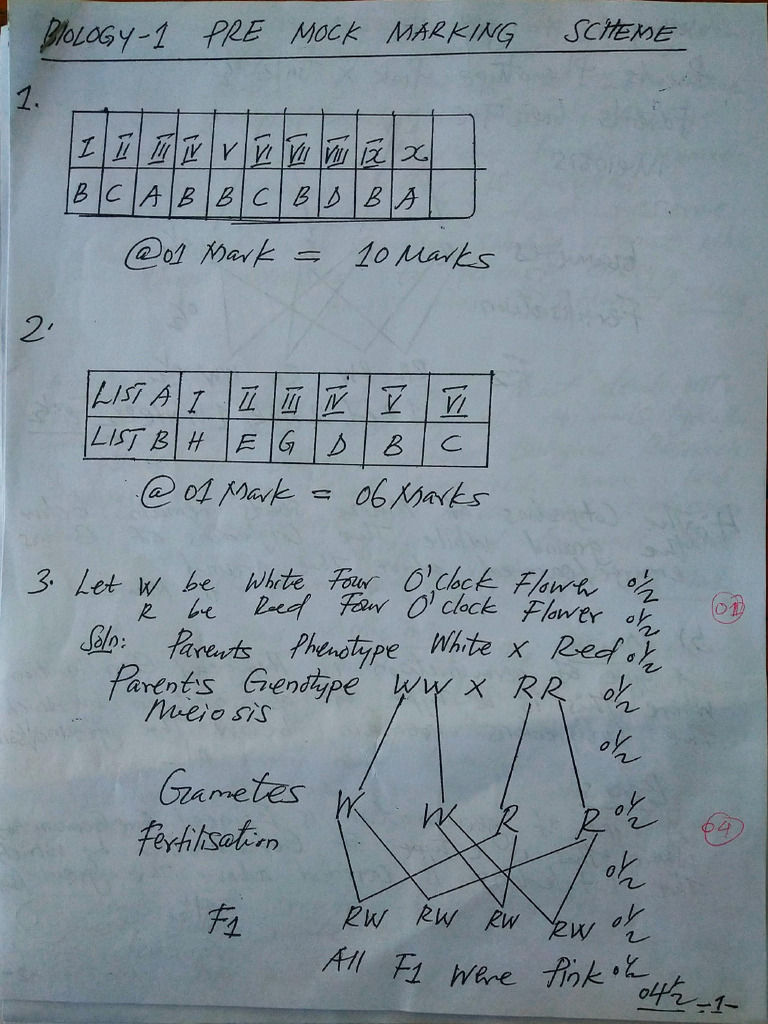 BIOLOGY-1 PRE MOCK MARKING SCHEME
1.
I II III IV V VI VII VIII IX X
B C A B B C B D B A
@01 Mark = 10 Marks
2.
LIST A I II III IV V VI
LIST B H E G D B C
@ 01 Mark = 06 Marks
3. Let W be White Four O'clock Flower 0½
R be Red Four O'clock Flower 0½ 01
Soln: Parents Phenotype White X Red 0½
Parent's Genotype WW X RR 0½
Meiosis 0½
Gametes W W R R 0½
Fertilisation 0½ 04
F1 RW RW RW RW 0½
All F1 were Pink 0½
04½ -1-